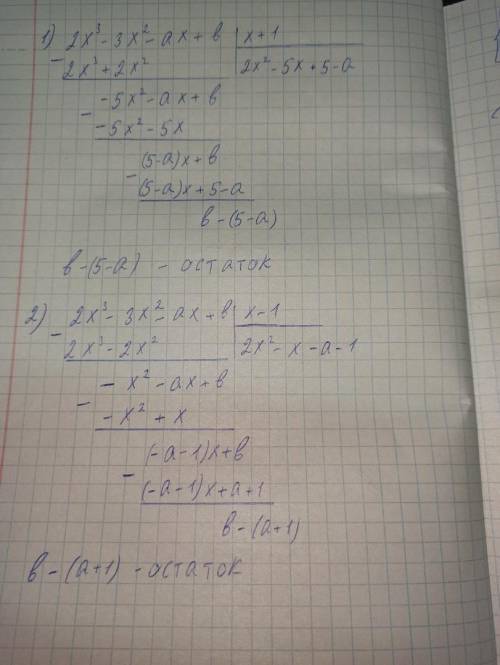 1) 2x³ - 3x² - ax + b | x + 1
- 2x³ + 2x² | 2x² - 5x + 5 - a
- 5x² - ax + b
- - 5x² - 5x
(5-a)x + b
- (5-a)x + 5 - a
b - (5-a)
b - (5-a) - остаток
2) 2x³ - 3x² - ax + b | x - 1
- 2x³ - 2x² | 2x² - x - a - 1
- x² - ax + b
- - x² + x
(-a-1)x + b
- (-a-1)x + a + 1
b - (a+1)
b - (a+1) - остаток